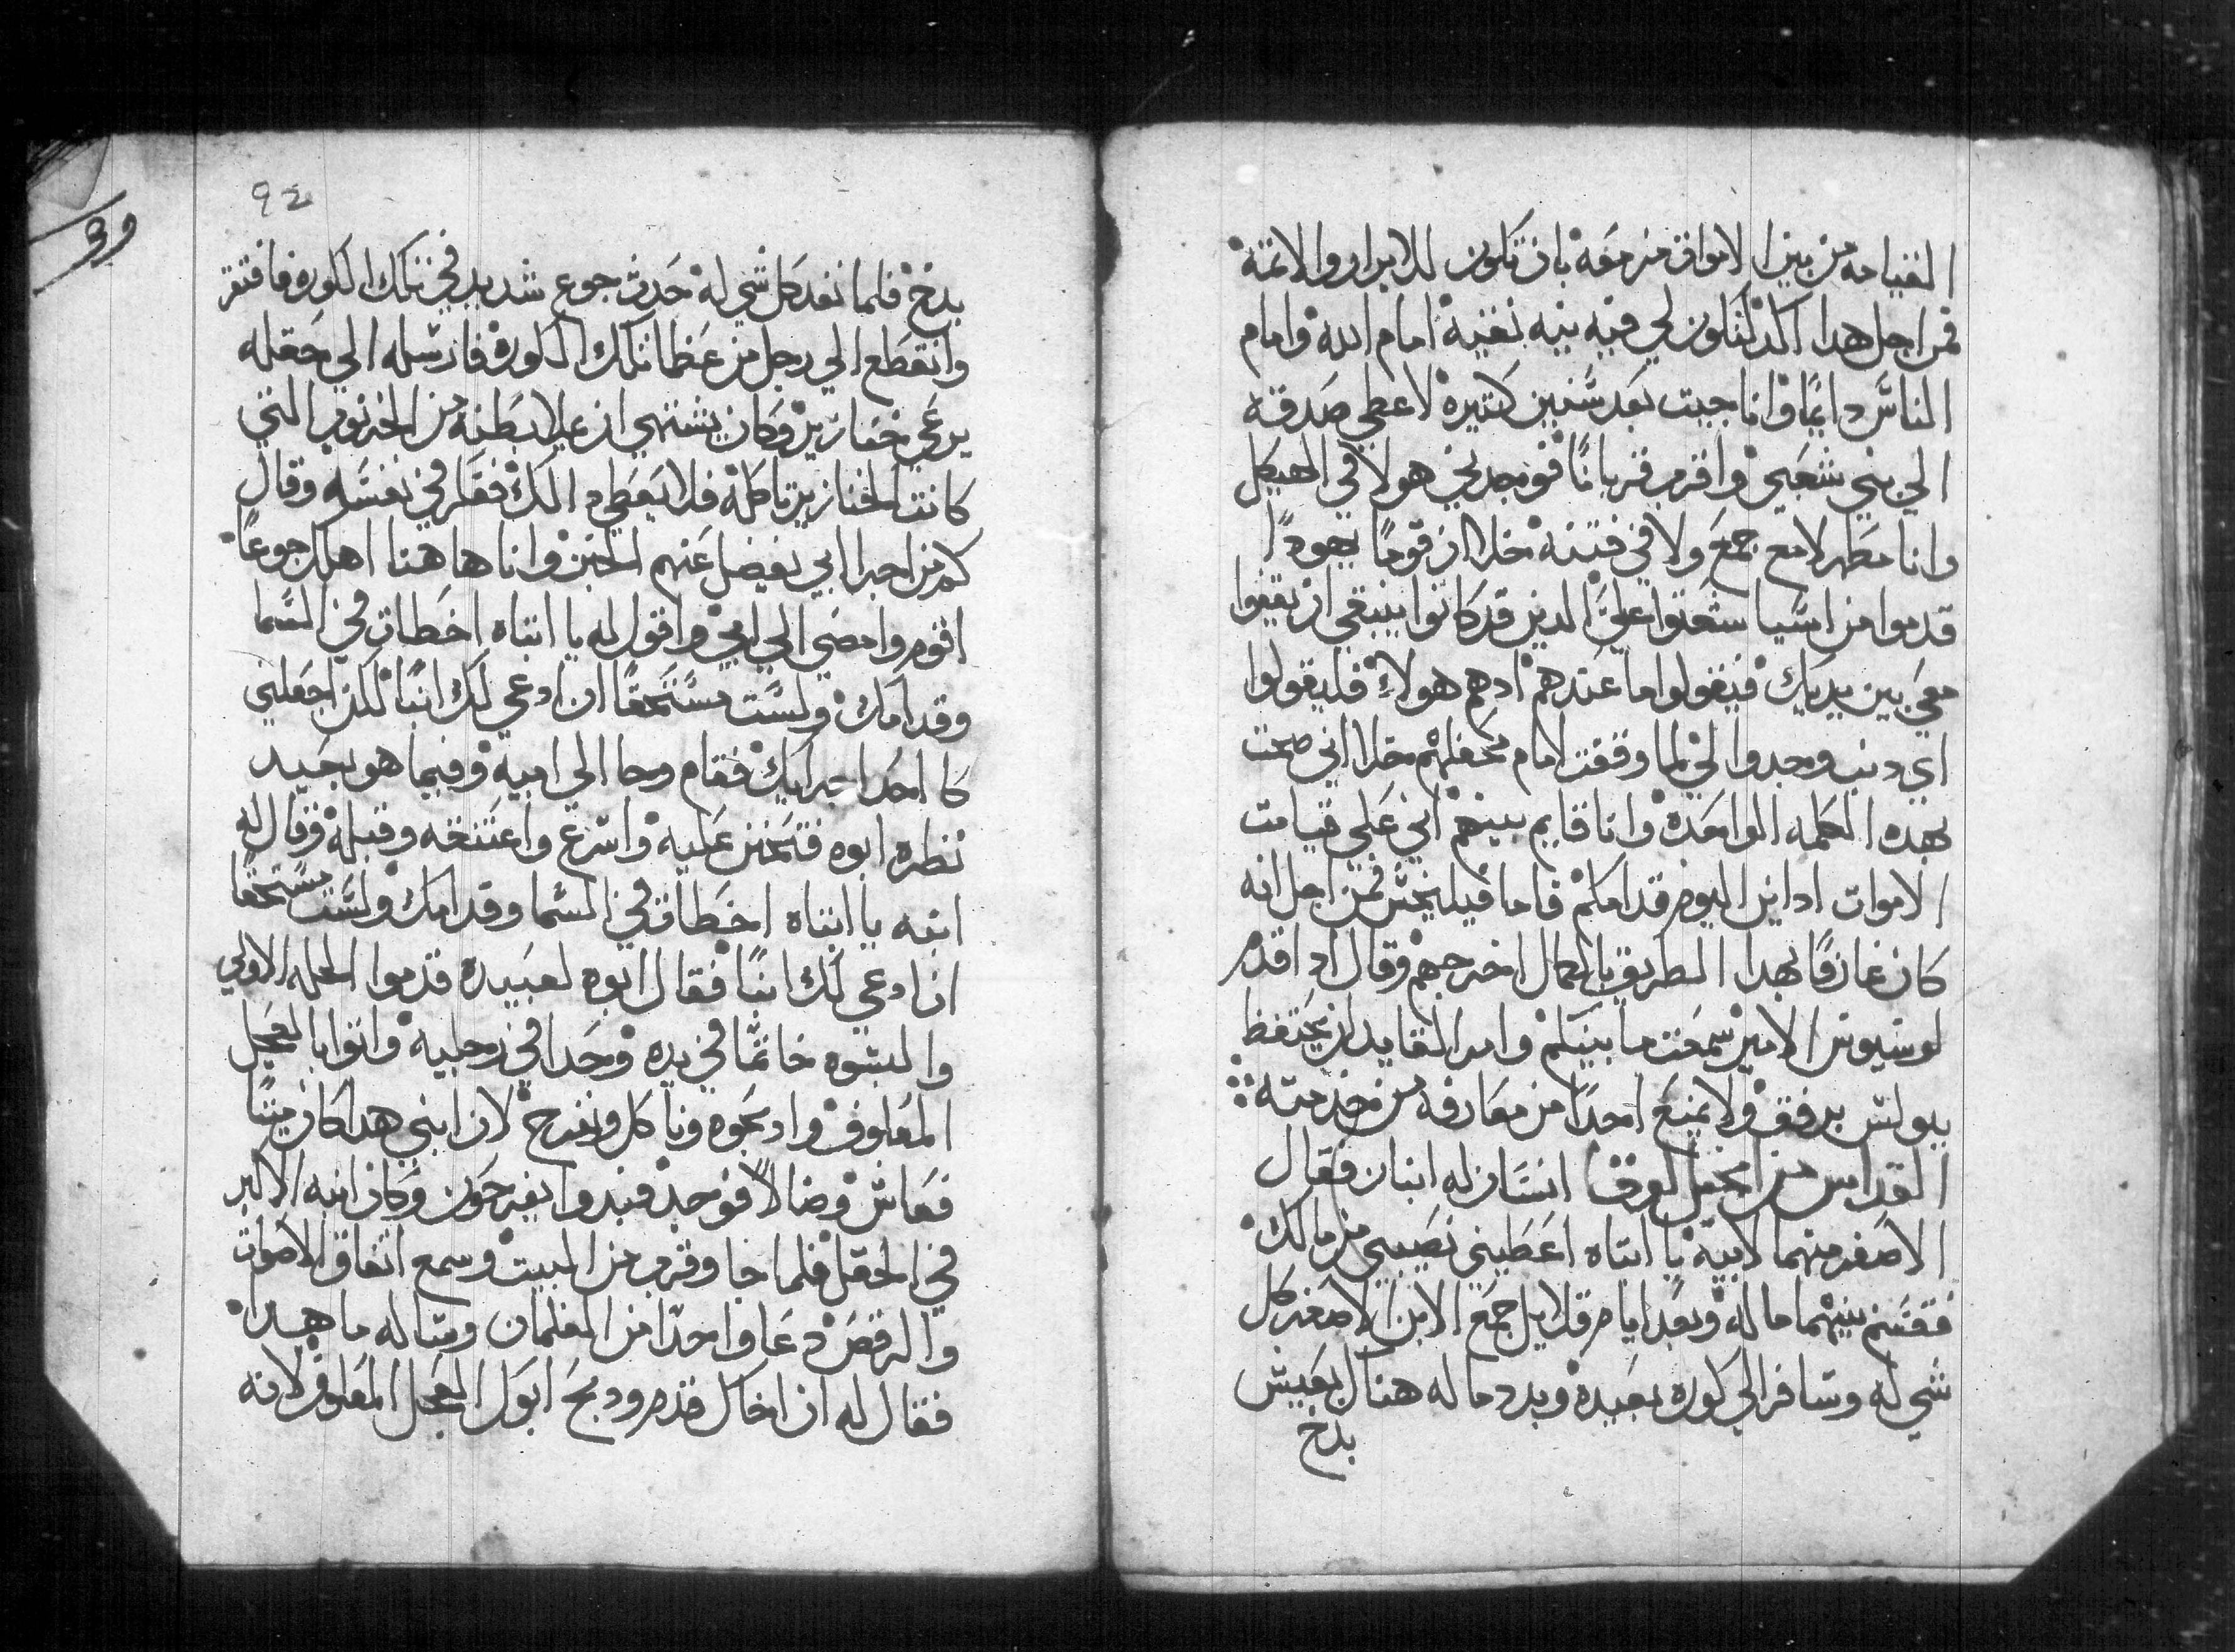 القيامه من بين الاموات مزمعة بان تكون للابرار والاتمة
فمن اجل هدا اكد لتكون لي فيه نيه نقية امام الله وامام
الناس دايمًا وانا جيت بعد سنين كتيرة لاعطي صدقه
الي بني شعبي واقرب قربانًا فوجدني هولا في الهيكل
وانا مطهر لا مع جمع ولا في فتنة خلا ان قومًا يهودًا
قدموا من اسيا شعتوا عليَّ الدين قد كانوا ينبغي ان يقفوا
معي بين يديك فيقولوا ما عندهم ادهم هولاء فليقولوا
اي دنب وجدوا لي لما وقفت امام محفلهم خلا اني صحت
بهده الكلمه الواحدة وانا قايم بينهم اني علي قيامت
الاموات ادان اليوم قدامكم فاما فيلبخس فمن اجل انه
كان عارفًا بهدا الطريق بالكمال اخرجهم وقال ادا قدم
لوسيوس الامير سمعت ما بينكم وامر القايد ان يحتفظ
ببولس برفق ولا يمنع احدًا من معارفه من خدمته
القداس من انجيل لوقا انسان له ابنان فقال
الاصغر منهما لابيه يا ابتاه اعطيني نصيبي من مالك
فقسم بينهما ماله وبعد ايام قلايل جمع الابن الاصغر كل
شي له وسافر الي كورة بعيدة وبدد ماله هناك بعيش
بدخ
٩٤
بدخ فلما نفد كل شي له حدث جوع شديد في تلك الكوره فافتقر
وانقطع الي رجل من عظما تلك الكورة فارسله الي حقله
يرعي خنازير وكان يشتهي ان يملا بطنه من الخرنوب التي
كانت الخنازير تاكله فلا يعطي دالك ففكر في نفسه وقال
كم من اجرا ابي يفضل عنهم الخبز وانا هاهنا اهلك جوعًا
اقوم وامضي الي ابي واقول له يا ابتاه اخطات في السما
وقدامك ولست مستحقًا ان ادعي لك ابنًا لكن اجعلني
كاحد اجرايك فقام وجا الي ابيه وفيما هو بعيد
نظره ابوه فتحنن عليه واسرع واعتنقه وقبله وقال له
ابنه يا ابتاه اخطات في السما وقدامك ولست مستحقًا
ان ادعي لك ابنًا فقال ابوه لعبيده قدموا الحله الاولي
والبسوه خاتمًا في يده وحدا في رجليه واتوا بالعجل
المعلوف وادبحوه وناكل ونفرح لان ابني هدا كان ميتًا
فعاش وضالاً فوجد فبدوا يفرحون وكان ابنه الاكبر
في الحقل فلما جا وقرب من البيت وسمع اتفاق الاصوات
والرقص دعا واحدًا من الغلمان وساله ما هدا
فقال له ان اخاك قدم ودبح ابوك العجل المعلوف لانه